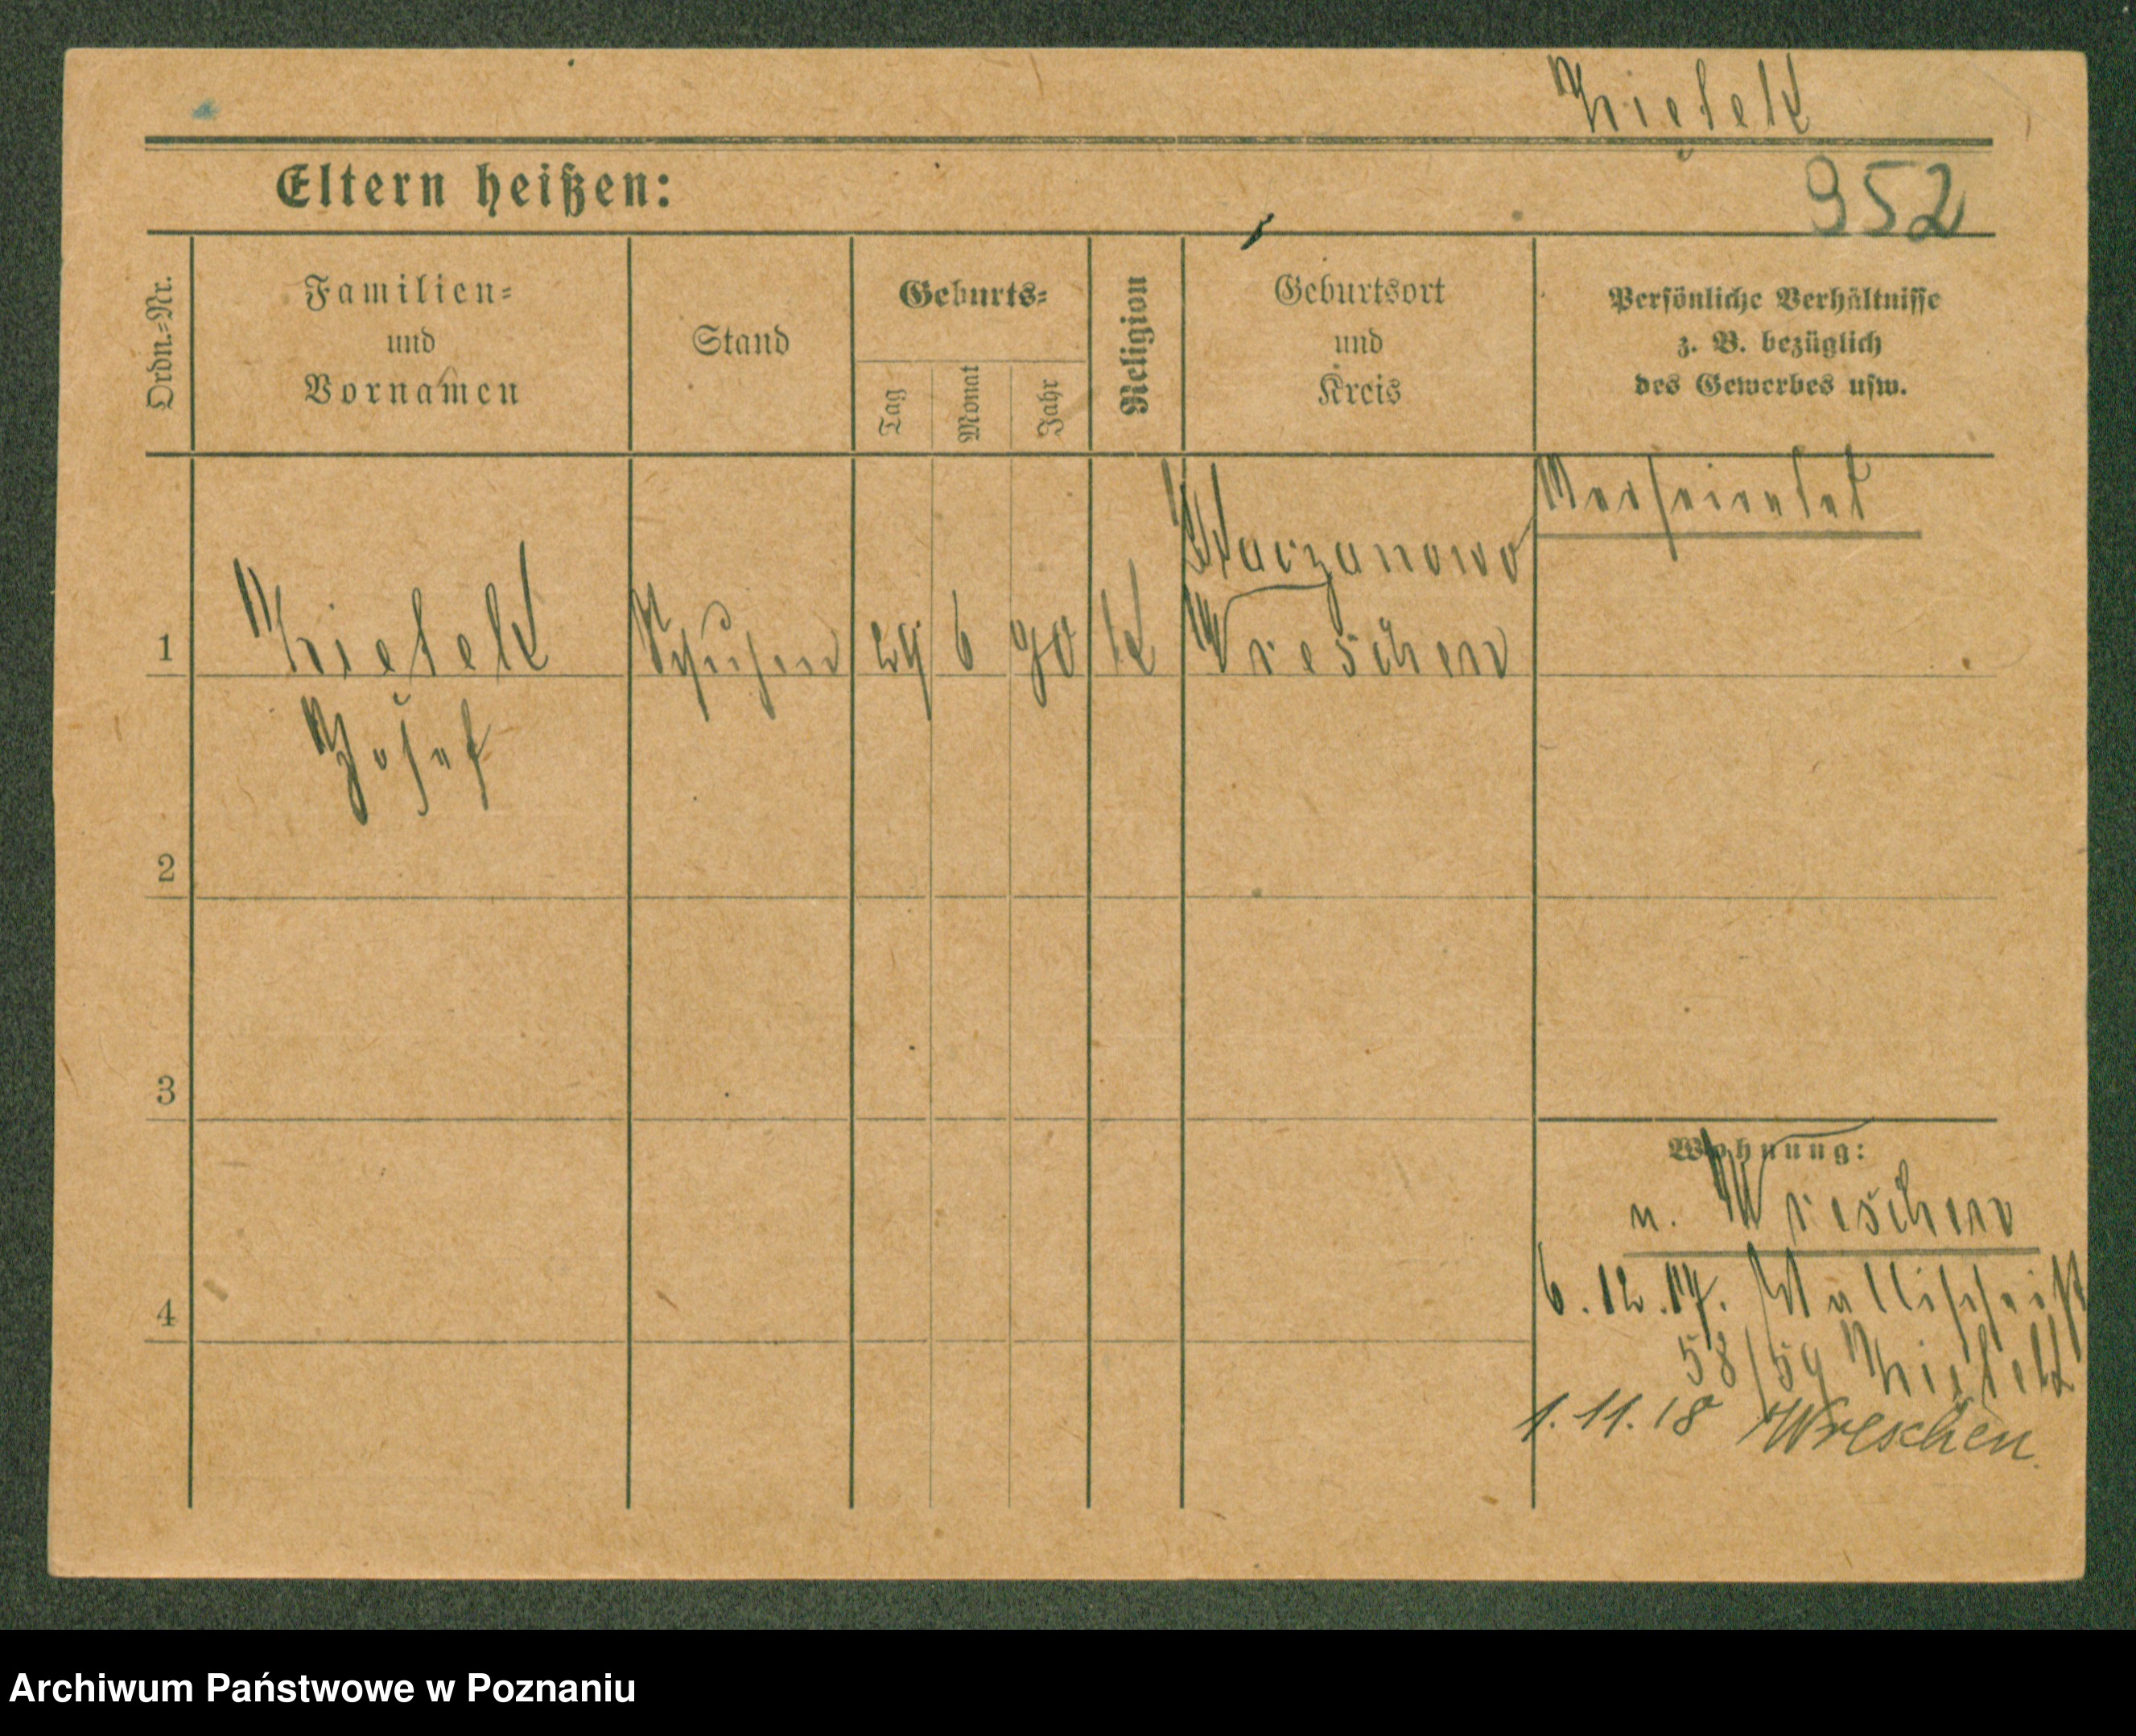 Eltern heißen:
952
Ordn.-Nr.
Familien-
und
Vornamen
Stand
Geburts-
Tag
Monat
Jahr
Religion
Geburtsort
und
Kreis
Persönliche Verhältnisse
z. B. bezüglich
des Gewerbes usw.
Verheiratet
1
29 6 90 K
Wreschen
Josef
2
3
4
Wohnung:
n. Wreschen
6.12.17. Wallischei
58/59
1.11.18 Wreschen
Archiwum Państwowe w Poznaniu